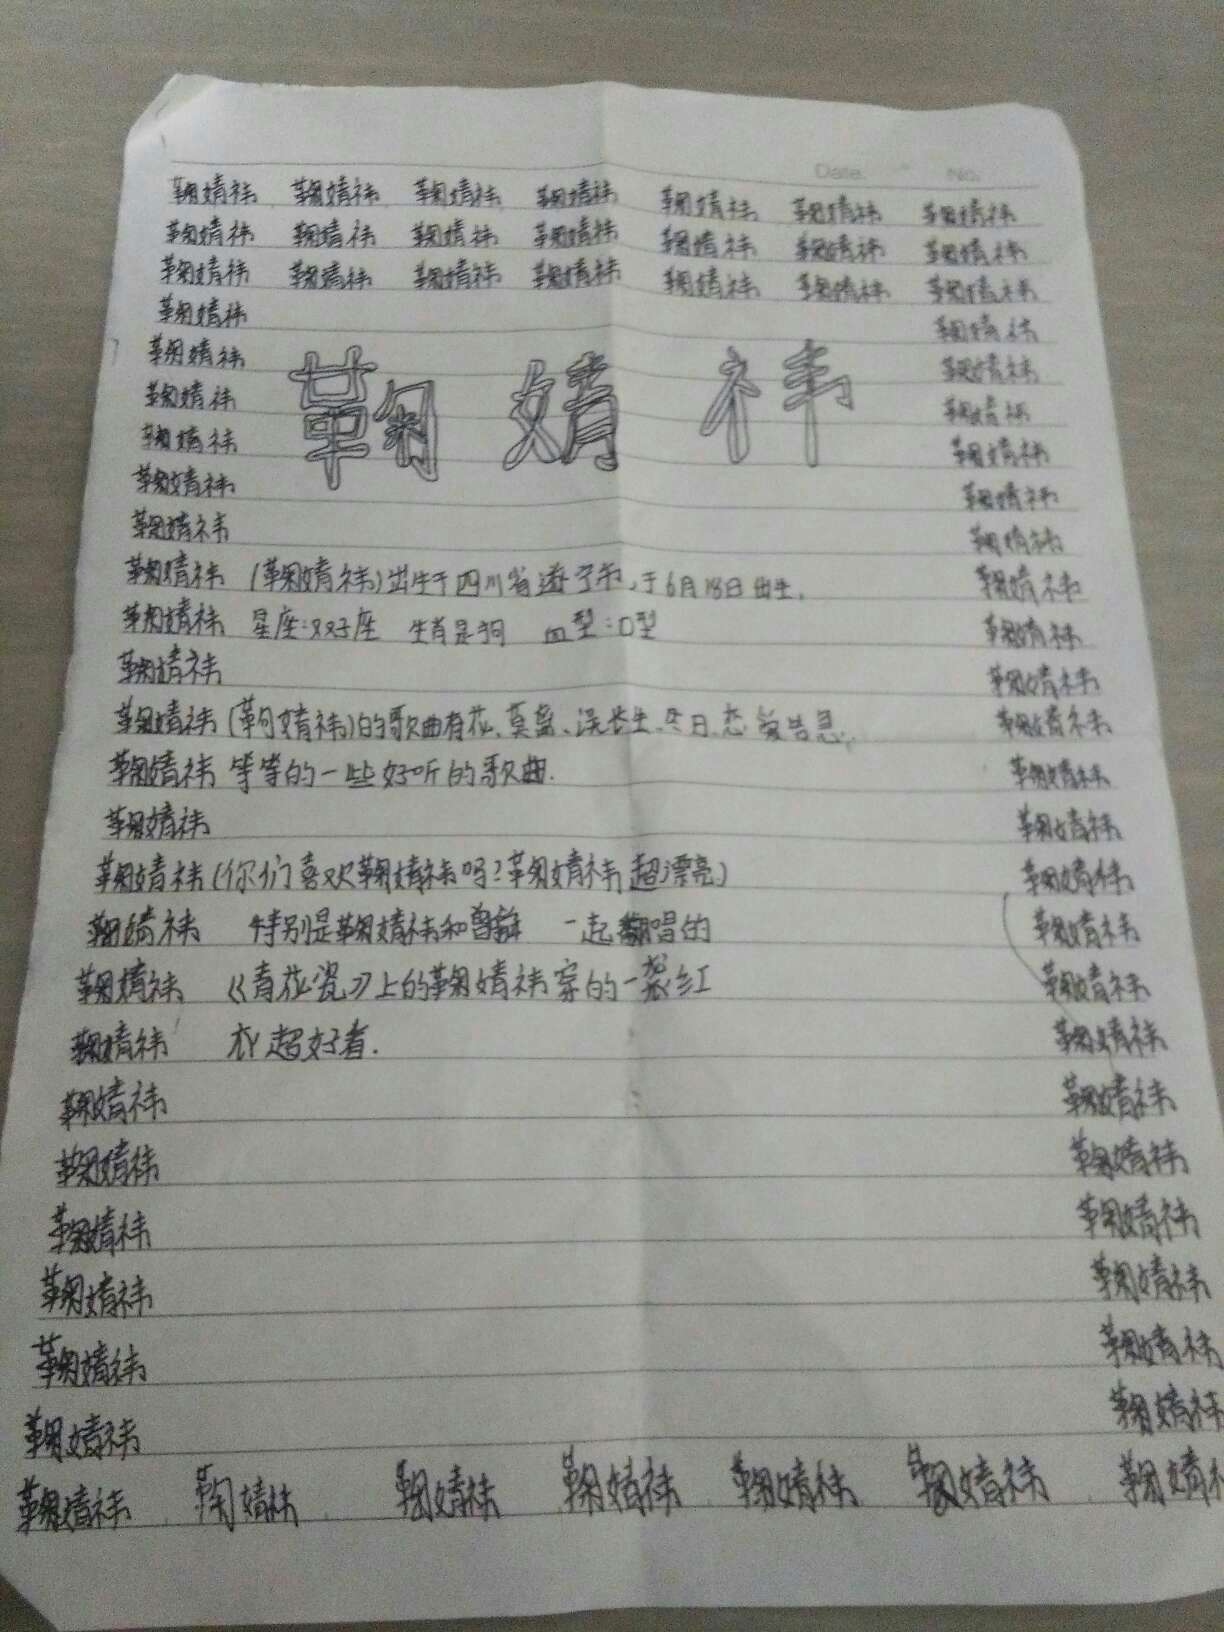 Date. No.
鞠婧祎 鞠婧祎 鞠婧祎 鞠婧祎 鞠婧祎 鞠婧祎 鞠婧祎
鞠婧祎 鞠婧祎 鞠婧祎 鞠婧祎 鞠婧祎 鞠婧祎 鞠婧祎
鞠婧祎 鞠婧祎 鞠婧祎 鞠婧祎 鞠婧祎 鞠婧祎 鞠婧祎
鞠婧祎 鞠婧祎
鞠婧祎 鞠婧祎
鞠婧祎 鞠婧祎 鞠婧祎
鞠婧祎 鞠婧祎
鞠婧祎 鞠婧祎
鞠婧祎 鞠婧祎
鞠婧祎 (鞠婧祎)出生于四川省遂宁市,于6月18日出生. 鞠婧祎
鞠婧祎 星座:双子座 生肖是狗 血型:O型 鞠婧祎
鞠婧祎 鞠婧祎
鞠婧祎 (鞠婧祎)的歌曲有花、莫、生、日、恋爱告急, 鞠婧祎
鞠婧祎 等等的一些好听的歌曲. 鞠婧祎
鞠婧祎 鞠婧祎
鞠婧祎 (你们喜欢鞠婧祎吗?鞠婧祎超漂亮) 鞠婧祎
鞠婧祎 特别是鞠婧祎和 一起翻唱的 鞠婧祎
鞠婧祎 《青花瓷》上的鞠婧祎穿的一袭红 鞠婧祎
鞠婧祎 衣超好看. 鞠婧祎
鞠婧祎 鞠婧祎
鞠婧祎 鞠婧祎
鞠婧祎 鞠婧祎
鞠婧祎 鞠婧祎
鞠婧祎 鞠婧祎
鞠婧祎 鞠婧祎
鞠婧祎 鞠婧祎 鞠婧祎 鞠婧祎 鞠婧祎 鞠婧祎 鞠婧祎